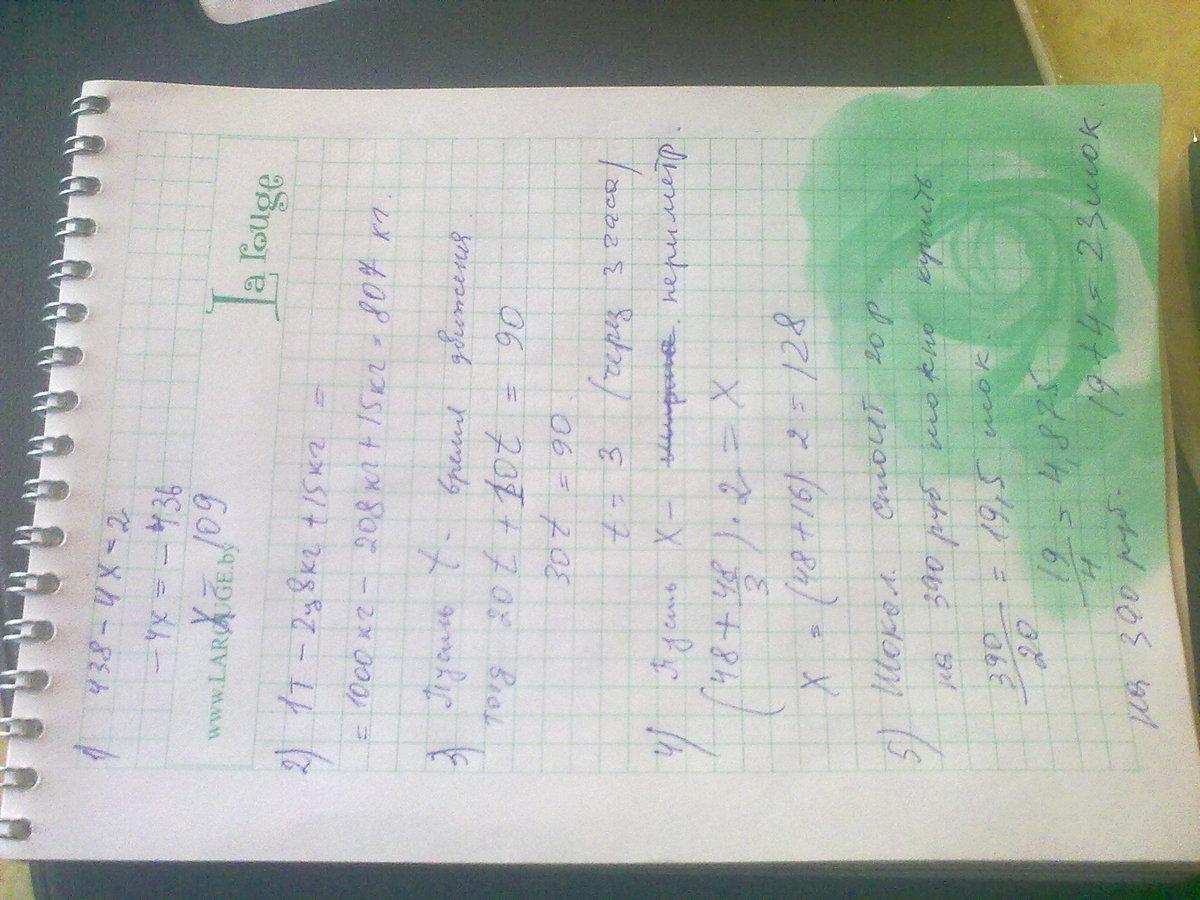 1) 438 - 4x = 2
- 4x = - 436
x = 109
www.LAROUGE.by
La rouge
2) 1т - 2ц 8кг + 15кг =
= 1000кг - 208кг + 15кг = 807 кг.
3) Пусть t - время движения
тогд 20t + 10t = 90
30t = 90.
t = 3 (через 3 часа)
4) Пусть x - периметр.
(48 + 48/3) · 2 = x
x = (48 + 16) · 2 = 128
5) Шокол. стоит 20 р.
на 390 руб можно купить
390/20 = 19,5 шок.
19/4 = 4,875
на 390 руб. 19 + 4 = 23 шок.